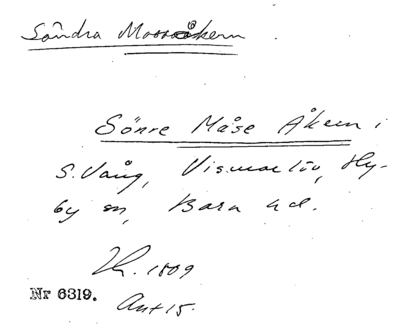 Söndra Mossåkern
Sönre Måse Åkern i
S. Vång, Vismarlöv, Hy-
by sn, Bara hd.
Lk. 1809
Nr 6319.
Akt 15.